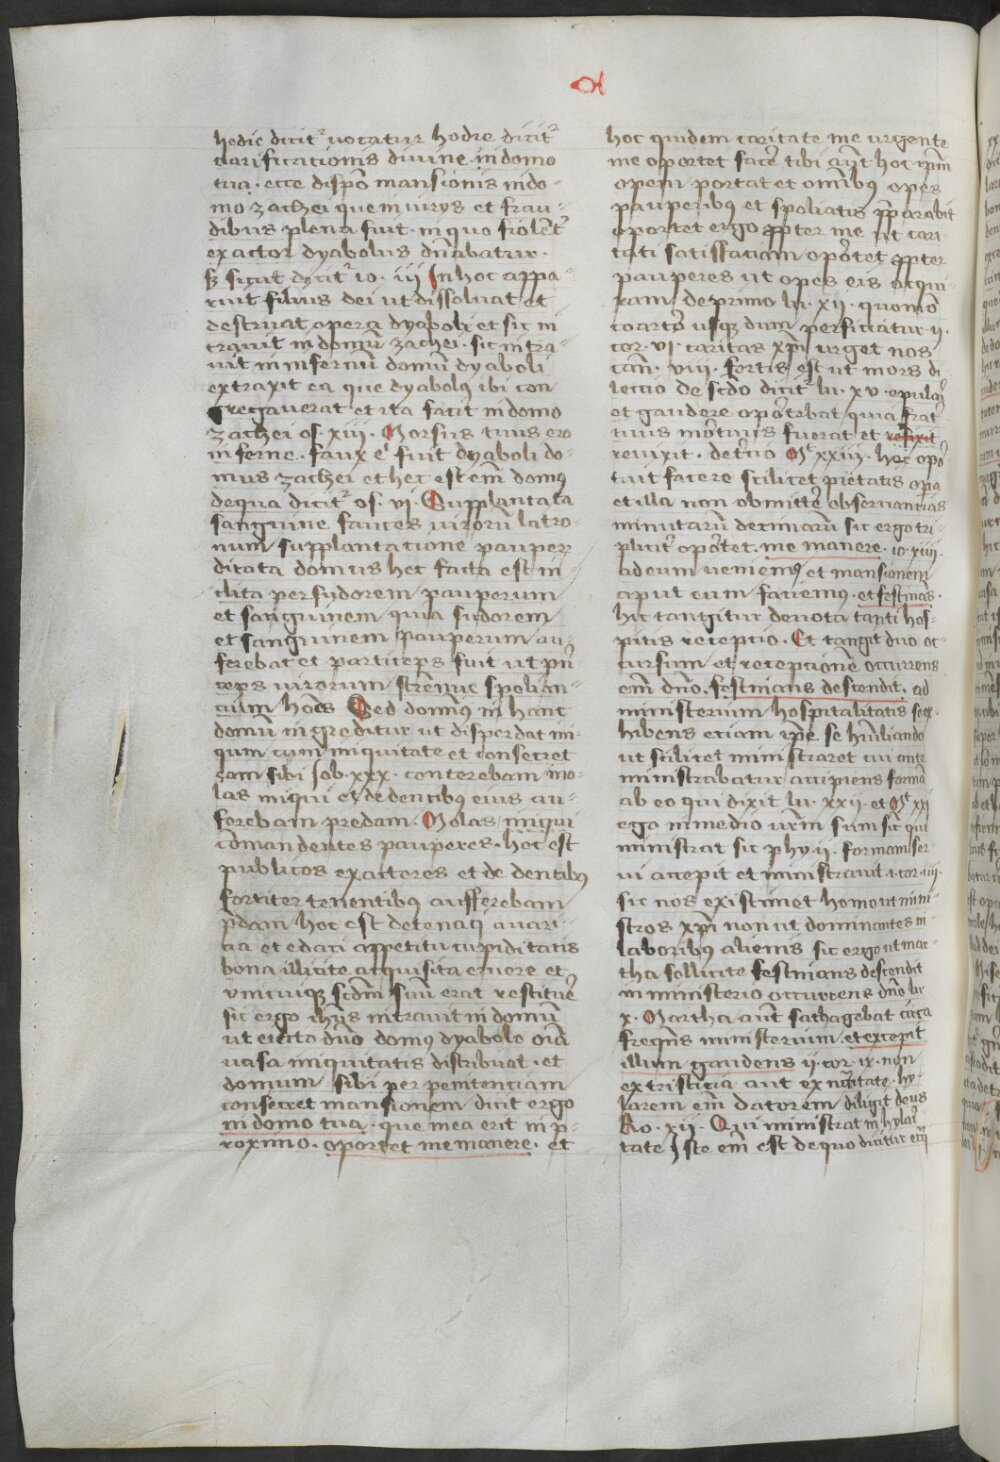 hodie dicitᷣ uocatur hodie dicitᷣ
clarificationis diuine · in domo
tua · ecce dispō mansionis in do-
mo zachei que iniurijs et frau-
dibus plena fuit · in quo fiolēt
exactor dyabolus dn̄abatur ·
sicut dicitᷣ io · iii In hoc appa-
ruit filius dei ut dissoluat et
destruat opera dyaboli et sic in
trauit in domū zachei · sic intra-
uit in infernū domū dyaboli
extraxit ea que dyabolꝰ ibi con
gregauerat et ita facit in domo
zachei os · xiii · Morsus tuus ero
inferne · faux eī fuit dyaboli do-
mus zachei et hec est em̄ domꝰ
de qua dicitᷣ os · vi · Supplantata
sanguine fauces uirorū latro-
num supplantatione pauperꝝ
ditata domus hec facta est in
clita per sudorem pauperum
et sanguinem quia sudorem
et sanguinem pauperum au-
ferebat et particeps fuit ut prī
ceps uirorum strēnue spolian-
cium hoīes Sed domīꝰ in hanc
domū ingreditur ut disperdat ini-
qum cum iniquitate et consecret
eam sibi Job · xxx · conterebam mo-
las iniqui et de dentibꝰ eius au-
ferebam predam · Molas iniqui
cōmandentes pauperes · hoc est
publicos exactores et de dentibꝰ
fortiter tenentibꝰ aufferebam
p̄dam hoc est de tenaci auari-
cia et edaci appetitu cupiditatis
bona illicite acquisita eruere et
unicuiqꝫ scd̄m suū erat restituē
sic ergo ihūs intrauit in domū
ut eiecto dn̄o domꝰ dyabolo oīā
uasa iniquitatis distribuat · et
domum sibi per penitenciam
consecret mansionem dicit ergo
in domo tua · que mea erit in p-
roximo · oportet me manere · et
hoc quidem caritate me urgente
me oportet facē tibi aūt hoc ipm̄
opem portat et omībꝰ opes
pauperibus et spoliatis
oportet ergo ꝓpter me ut cari
tati satisfaciam opōtet ꝓpter
pauperes ut opes eis acqui-
ram de primo lu · xii · quomō
coartor usqꝫ dum perficiatur · ii ·
cor · v · caritas xp̄i urget nos
can̄ · viii · fortis est ut mors di
lectio de scd̄o dicitᷣ lu · xv · epulaī
et gaudere oportebat quia frat̄
tuus mortuus fuerat et
reuixit · de tercio Mt xxiij · hec opō
tuit facere scilicet pietatis opa
et illa non obmittē obseruancias
minutarū decimarū sic ergo tri
pliciter oportet · me manere · io · xiiij ·
ad eum ueniemꝰ et mansionem
aput eum faciemꝰ · et festinās ·
hic tangitur deuota tanti hos-
pitis receptio · Et tangit duo oc
cursum et receptionē occurrens
em̄ dn̄o · festinans descendit · ad
ministerium hospitalitatis se ex
hibens eciam ip̄e se hūiliando
ut scilicet ministraret cui ante
ministrabatur accipiens formā
ab eo qui dixit lu · xxii · et Mt xxj
ego in medio urm̄ sum sic̄ qui
ministrat sic phy · ii · formam ser
ui accepit et ministrauit · 1 · cor · iiij ·
sic nos existimet homo ut mini
stros xp̄i non ut dominantes in
laboribus alienis sic ergo ut mar-
tha sollicite festinans descendit
in ministerio occurrens dn̄o lu
x · Martha aūt sathagebat circa
freqn̄s ministerium · et excepit
illum gaudens ii · cor · ix · non
ex tristicia aut ex nc̄citate · hy-
larem em̄ datorem diligit deus
Ro · xii · Qui ministrat in hylari
tate Iste em̄ est de quo dicitur